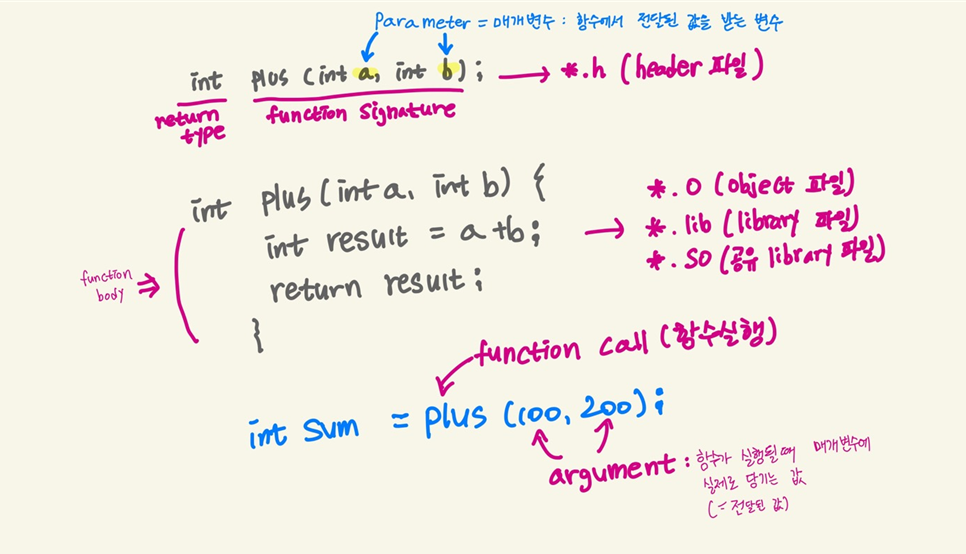 Parameter = 매개변수 : 함수에서 전달된 값을 받는 변수
int plus (int a, int b) ; → *.h (header 파일)
return type
function Signature
int plus (int a, int b) {
int result = a+b;
return result;
}
function body ⇒
→ *.O (object 파일)
*.lib (library 파일)
*.SO (공유 library 파일)
function call (함수실행)
int sum = plus (100, 200);
argument : 함수가 실행될때 매개변수에
실제로 담기는 값
(= 전달된 값)